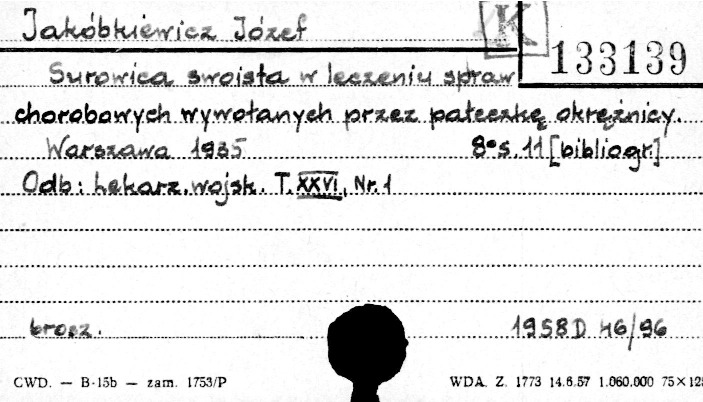 Jakóbkiewicz Józef
K
133139
Surowica swoista w leczeniu spraw
chorobowych wywołanych przez pałeczkę okrężnicy.
Warszawa 1935 8° s. 11 [bibliogr.]
Odb: Lekarz. wojsk. T. XXVI, Nr. 1
brosz. 1958 D 46/96
CWD. — B-15b — zam. 1753/P WDA. Z. 1773 14.6.57 1.060.000 75×125